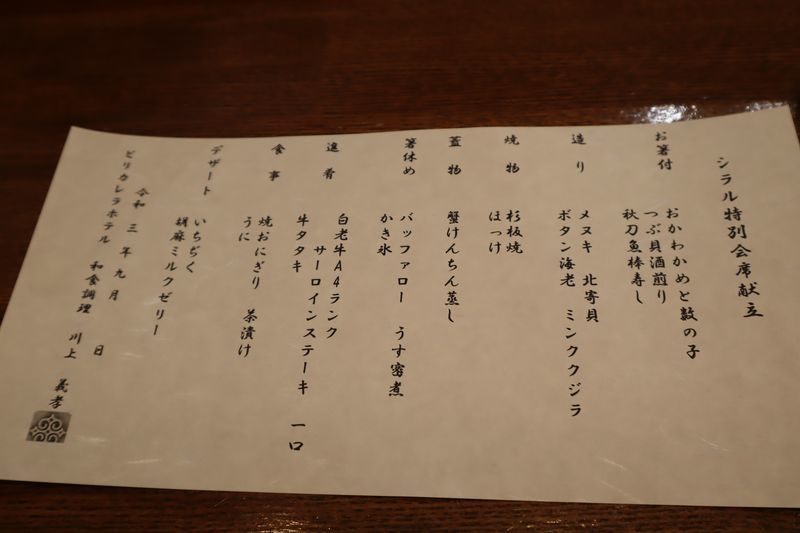 シラル特別会席献立
お箸付
おかわかめと数の子
つぶ貝酒煎り
秋刀魚棒寿し
造り
メヌキ 北寄貝
ボタン海老 ミンククジラ
焼物
杉板焼
ほっけ
蓋物
蟹けんちん蒸し
箸休め
バッファロー うす蜜煮
かき氷
進肴
白老牛A4ランク
サーロインステーキ 一口
牛タタキ
食事
焼おにぎり 茶漬け
うに
デザート
いちぢく
胡麻ミルクゼリー
令和 三年九月 日
ピリカレラホテル 和食調理 川上 義孝